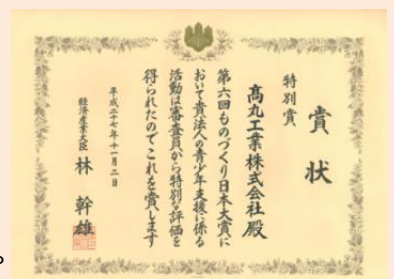 賞状
特別賞
髙丸工業株式会社 殿
第六回ものづくり日本大賞に
おいて貴法人の青少年支援に係る
活動は審査員から特別な評価を
得られたのでこれを賞します
平成二十七年十一月二日
経済産業大臣 林 幹雄
。